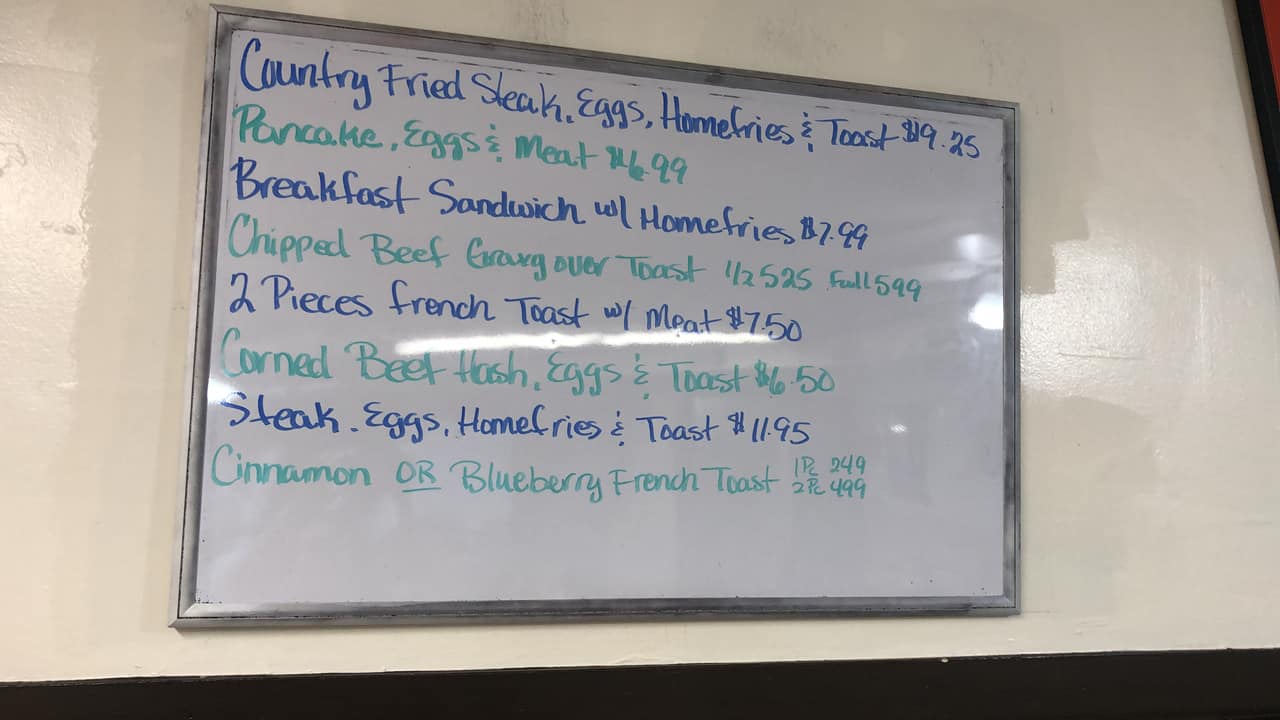 Country Fried Steak, Eggs, Homefries & Toast $9.25
Pancake, Eggs & Meat $6.99
Breakfast Sandwich w/ Homefries $7.99
Chipped Beef Gravy over Toast 1/2 525 full 599
2 Pieces french Toast w/ Meat $7.50
Corned Beef Hash, Eggs & Toast $6.50
Steak, Eggs, Homefries & Toast $11.95
Cinnamon OR Blueberry French Toast 1Pc 249
2Pc 499